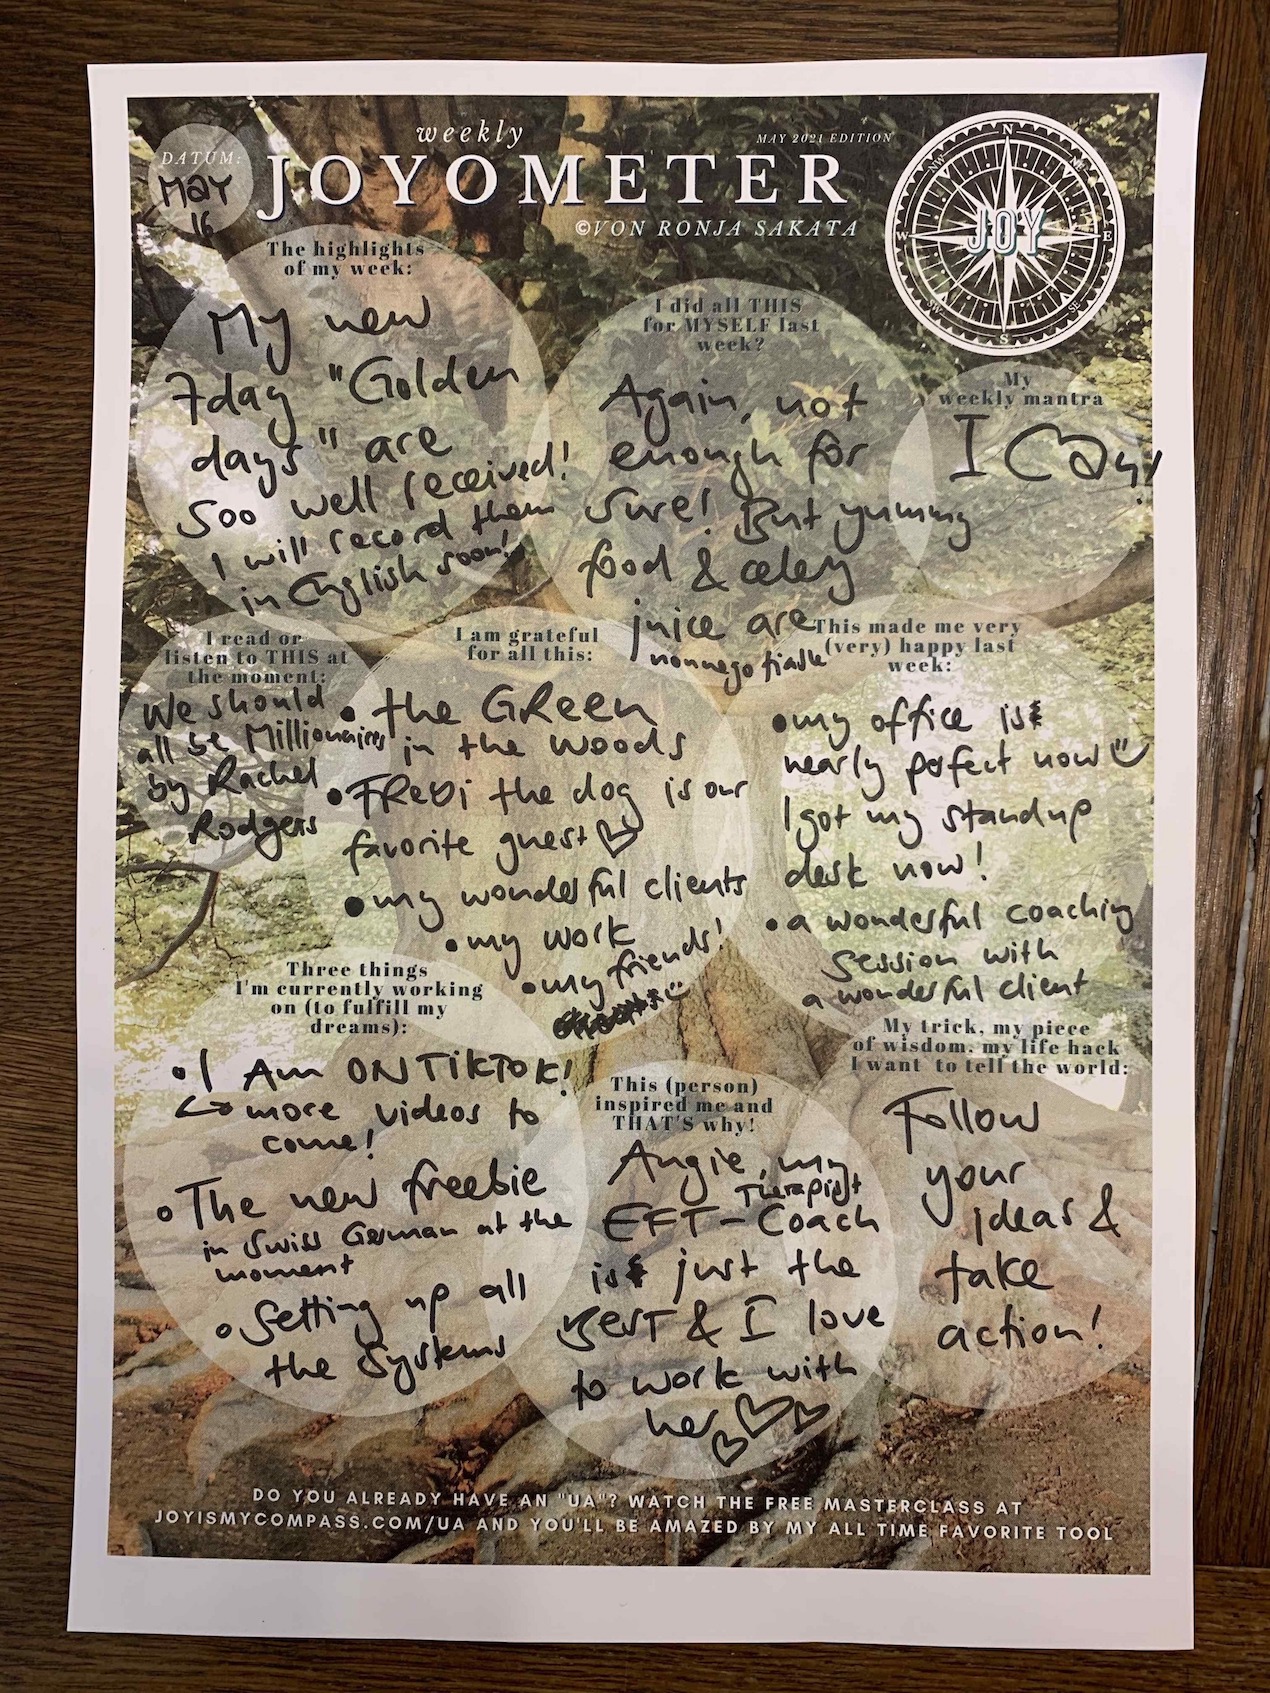 weekly
MAY 2021 EDITION
DATUM:
JOYOMETER
©VON RONJA SAKATA
May
16
N
NW
NE
W
JOY
E
SW
SE
S
The highlights
of my week:
My new
7day "Golden
days" are
Soo well received!
I will record them
in English soon!
I did all THIS
for MYSELF last
week?
Again, not
enough for
sure! But yummy
food & celery
juice are
nonnegotiable
My
weekly mantra
I can!
I read or
listen to THIS at
the moment:
We should
all be Millionaires
by Rachel
Rodgers
I am grateful
for all this:
• the GReen
in the woods
• FReDi the dog is our
favorite guest ♡
• my wonderful clients
• my work
• my friends!
This made me very
(very) happy last
week:
• my office is
nearly perfect now
I got my standup
desk now!
• a wonderful coaching
session with
a wonderful client
Three things
I'm currently working
on (to fulfill my
dreams):
• I Am ON TikTok!
↪ more videos to
come!
• The new freebie
in Swiss German at the
moment
• Setting up all
the systems
This (person)
inspired me and
THAT'S why!
Angie, my
Therapist
EFT-Coach
is just the
BesT & I love
to work with
her ♡♡♡
My trick, my piece
of wisdom, my life hack
I want to tell the world:
Follow
your
ideas &
take
action!
DO YOU ALREADY HAVE AN "UA"? WATCH THE FREE MASTERCLASS AT
JOYISMYCOMPASS.COM/UA AND YOU'LL BE AMAZED BY MY ALL TIME FAVORITE TOOL